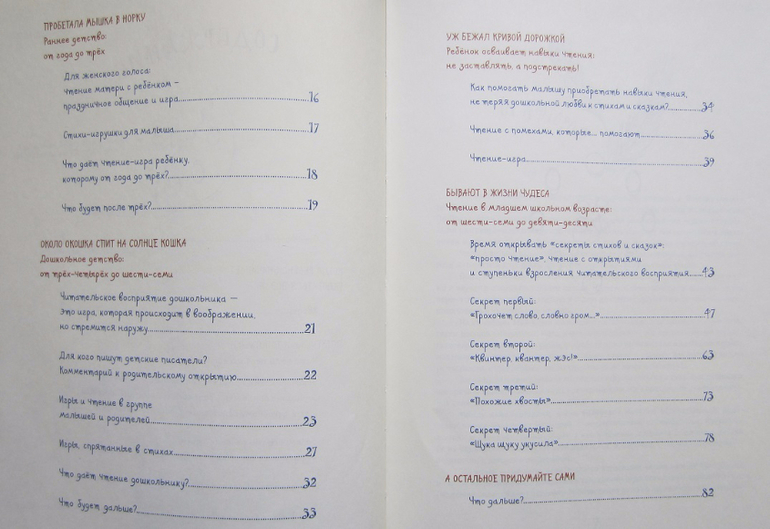 ПРОБЕТАЛА МЫШКА В НОРКУ
Раннее детство:
от года до трёх
Для женского голоса:
чтение матери с ребёнком –
праздничное общение и игра 16
Стихи-игрушки для малыша 17
Что даёт чтение-игра ребёнку,
которому от года до трёх? 18
Что будет после трёх? 19
ОКОЛО ОКОШКА СПИТ НА СОЛНЦЕ КОШКА
Дошкольное детство:
от трёх-четырёх до шести-семи
Читательское восприятие дошкольника –
это игра, которая происходит в воображении,
но стремится наружу 21
Для кого пишут детские писатели?
Комментарий к родительскому открытию 22
Игры и чтение в группе
малышей и родителей 23
Игры, спрятанные в стихах 27
Что даёт чтение дошкольнику? 32
Что будет дальше? 33
УЖ БЕЖАЛ КРИВОЙ ДОРОЖКОЙ
Ребёнок осваивает навыки чтения:
не заставлять, а подстрекать!
Как помогать малышу приобретать навыки чтения,
не теряя дошкольной любви к стихам и сказкам? 34
Чтение с помехами, которые... помогают 36
Чтение-игра 39
БЫВАЮТ В ЖИЗНИ ЧУДЕСА
Чтение в младшем школьном возрасте:
от шести-семи до девяти-десяти
Время открывать «секреты стихов и сказок»:
«просто чтение», чтение с открытиями
и ступеньки взросления читательского восприятия 43
Секрет первый:
«Грохочет слово, словно гром...» 47
Секрет второй:
«Квинтер, квантер, жэс!» 63
Секрет третий:
«Похожие хвосты» 73
Секрет четвертый:
«Щука щуку укусила» 78
А ОСТАЛЬНОЕ ПРИДУМАЙТЕ САМИ
Что дальше? 82